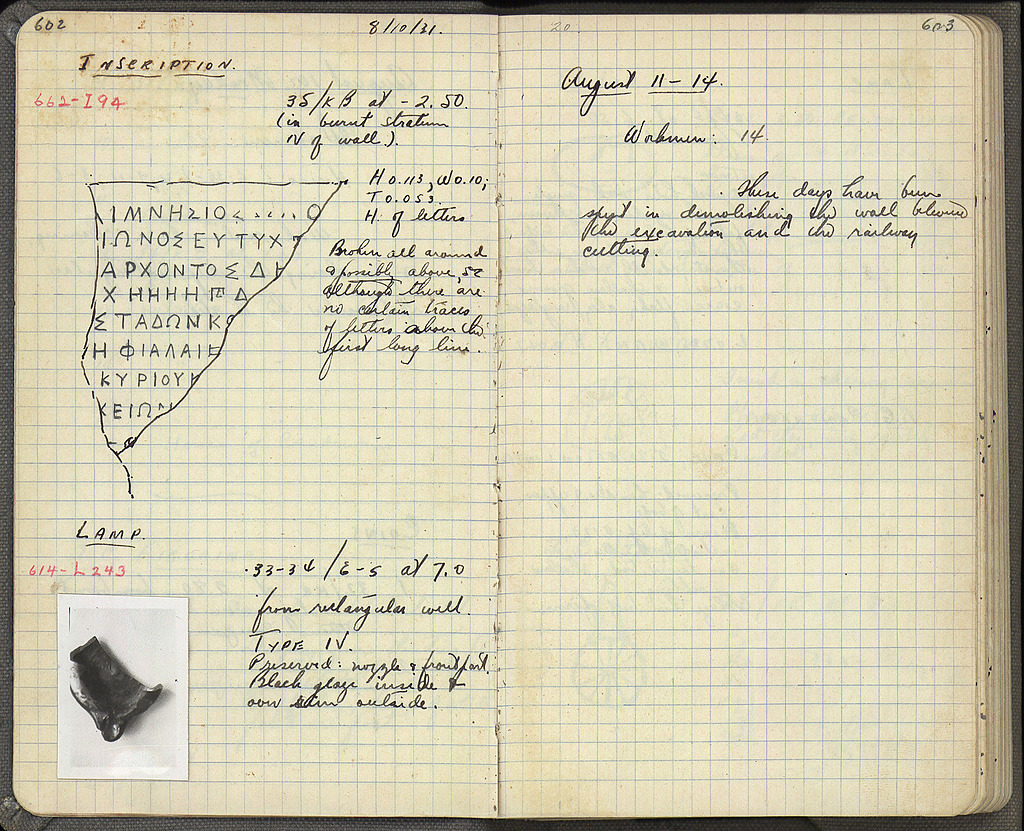 602
8/10/31.
INSCRIPTION.
662-I 94
35/KB at -2.50.
(in burnt stratum
N of wall).
H 0.113, W 0.10,
T 0.053.
H. of letters
Broken all around
& possibly above,
although there are
no certain traces
of letters above the
first long line.
ΙΜΝΗΣΙΟΣ....Ο
ΙΩΝΟΣΕΥΤΥΧ
ΑΡΧΟΝΤΟΣΔ
ΧΗΗΗΗ Δ
ΣΤΑΔΩΝΚ
ΗΦΙΑΛΑΙ
ΚΥΡΙΟΥ
ΚΕΙΩΝ
LAMP.
614-L 243
33-34/E-5 at 7.0
from rectangular well.
TYPE IV.
Preserved: nozzle & front part.
Black glaze inside &
over rim outside.
20
603
August 11-14.
Workmen: 14.
These days have been
spent in demolishing the wall between
the excavation and the railway
cutting.